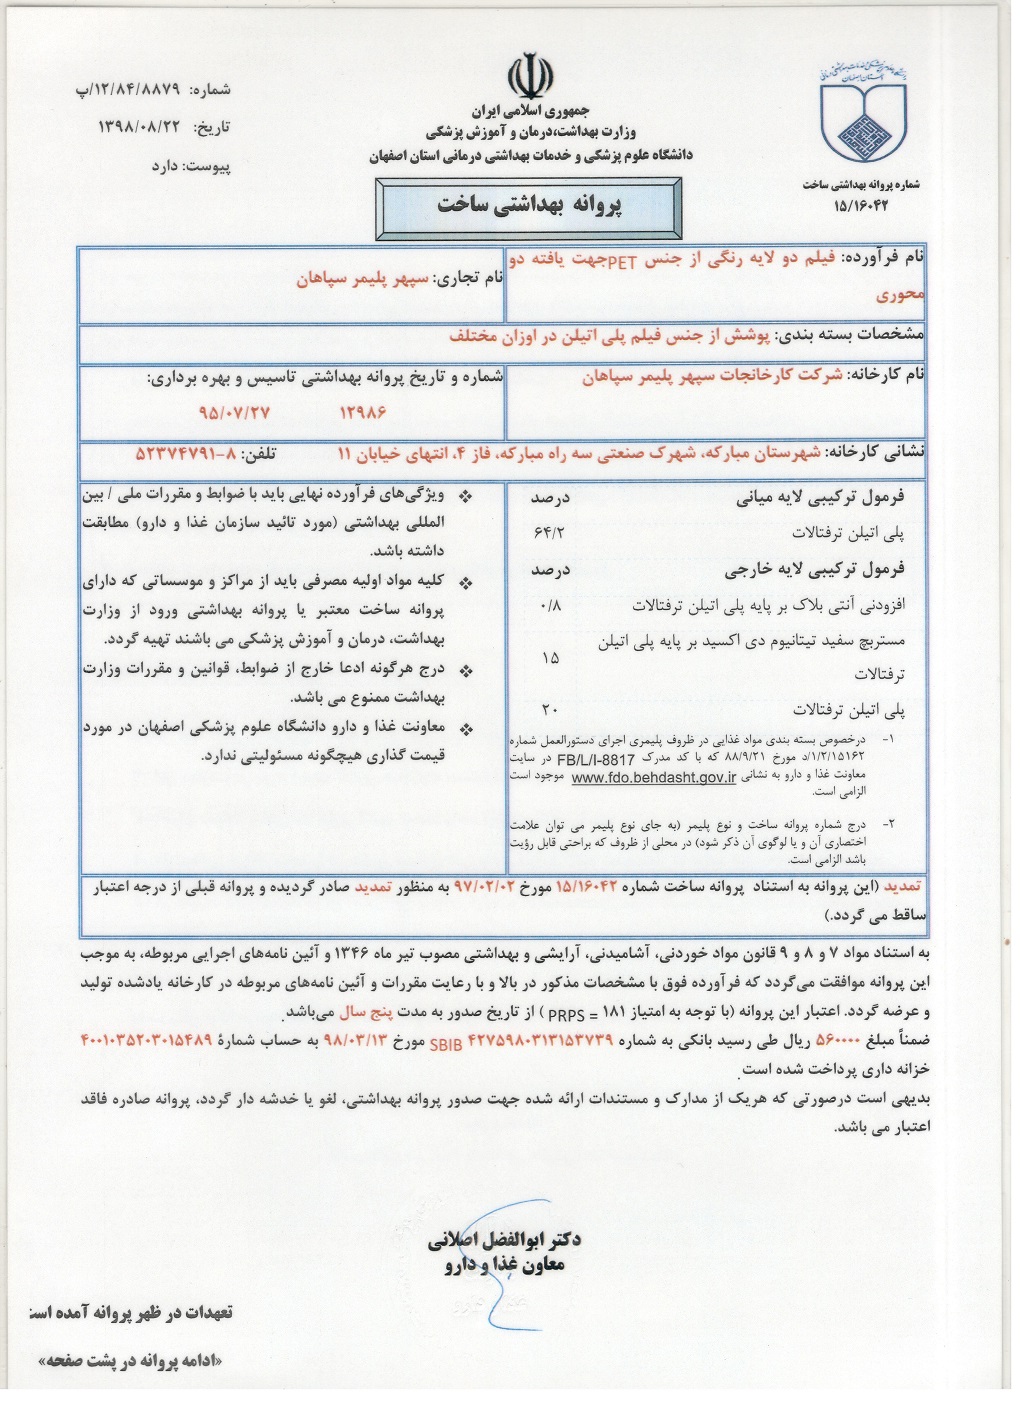 شماره: ۱۲/۸۴/۸۸۷۹/پ
تاریخ: ۱۳۹۸/۰۸/۲۲
پیوست: دارد
جمهوری اسلامی ایران
وزارت بهداشت،درمان و آموزش پزشکی
دانشگاه علوم پزشکی و خدمات بهداشتی درمانی استان اصفهان
شماره پروانه بهداشتی ساخت
۱۵/۱۶۰۴۲
پروانه بهداشتی ساخت
نام فرآورده: فیلم دو لایه رنگی از جنس PETجهت یافته دو
محوری
نام تجاری: سپهر پلیمر سپاهان
مشخصات بسته بندی: پوشش از جنس فیلم پلی اتیلن در اوزان مختلف
نام کارخانه: شرکت کارخانجات سپهر پلیمر سپاهان
شماره و تاریخ پروانه بهداشتی تاسیس و بهره برداری:
۱۲۹۸۶ ۹۵/۰۷/۲۷
نشانی کارخانه: شهرستان مبارکه، شهرک صنعتی سه راه مبارکه، فاز ۴، انتهای خیابان ۱۱ تلفن: ۸-۵۲۳۷۴۷۹۱
فرمول ترکیبی لایه میانی درصد
پلی اتیلن ترفتالات ۶۴/۲
فرمول ترکیبی لایه خارجی درصد
افزودنی آنتی بلاک بر پایه پلی اتیلن ترفتالات ۰/۸
مستربچ سفید تیتانیوم دی اکسید بر پایه پلی اتیلن
ترفتالات ۱۵
پلی اتیلن ترفتالات ۲۰
۱- درخصوص بسته بندی مواد غذایی در ظروف پلیمری اجرای دستورالعمل شماره
۱/۲/۱۵۱۶۲/د مورخ ۸۸/۹/۲۱ که با کد مدرک FB/L/I-8817 در سایت
معاونت غذا و دارو به نشانی www.fdo.behdasht.gov.ir موجود است
الزامی است.
۲- درج شماره پروانه ساخت و نوع پلیمر (به جای نوع پلیمر می توان علامت
اختصاری آن و یا لوگوی آن ذکر شود) در محلی از ظروف که براحتی قابل رؤیت
باشد الزامی است.
❖ ویژگی‌های فرآورده نهایی باید با ضوابط و مقررات ملی / بین
المللی بهداشتی (مورد تائید سازمان غذا و دارو) مطابقت
داشته باشد.
❖ کلیه مواد اولیه مصرفی باید از مراکز و موسساتی که دارای
پروانه ساخت معتبر یا پروانه بهداشتی ورود از وزارت
بهداشت، درمان و آموزش پزشکی می باشند تهیه گردد.
❖ درج هرگونه ادعا خارج از ضوابط، قوانین و مقررات وزارت
بهداشت ممنوع می باشد.
❖ معاونت غذا و دارو دانشگاه علوم پزشکی اصفهان در مورد
قیمت گذاری هیچگونه مسئولیتی ندارد.
تمدید (این پروانه به استناد پروانه ساخت شماره ۱۵/۱۶۰۴۲ مورخ ۹۷/۰۲/۰۲ به منظور تمدید صادر گردیده و پروانه قبلی از درجه اعتبار
ساقط می گردد.)
به استناد مواد ۷ و ۸ و ۹ قانون مواد خوردنی، آشامیدنی، آرایشی و بهداشتی مصوب تیر ماه ۱۳۴۶ و آئین نامه‌های اجرایی مربوطه، به موجب
این پروانه موافقت می‌گردد که فرآورده فوق با مشخصات مذکور در بالا و با رعایت مقررات و آئین نامه‌های مربوطه در کارخانه یادشده تولید
و عرضه گردد. اعتبار این پروانه (با توجه به امتیاز ۱۸۱ = PRPS ) از تاریخ صدور به مدت پنج سال می‌باشد.
ضمناً مبلغ ۵۶۰۰۰۰ ریال طی رسید بانکی به شماره ۴۲۷۵۹۸۰۳۱۳۱۵۳۷۳۹ SBIB مورخ ۹۸/۰۳/۱۳ به حساب شمارۀ ۴۰۰۱۰۳۵۲۰۳۰۱۵۴۸۹
خزانه داری پرداخت شده است.
بدیهی است درصورتی که هریک از مدارک و مستندات ارائه شده جهت صدور پروانه بهداشتی، لغو یا خدشه دار گردد، پروانه صادره فاقد
اعتبار می باشد.
دکتر ابوالفضل اصلانی
معاون غذا و دارو
تعهدات در ظهر پروانه آمده است
«ادامه پروانه در پشت صفحه»